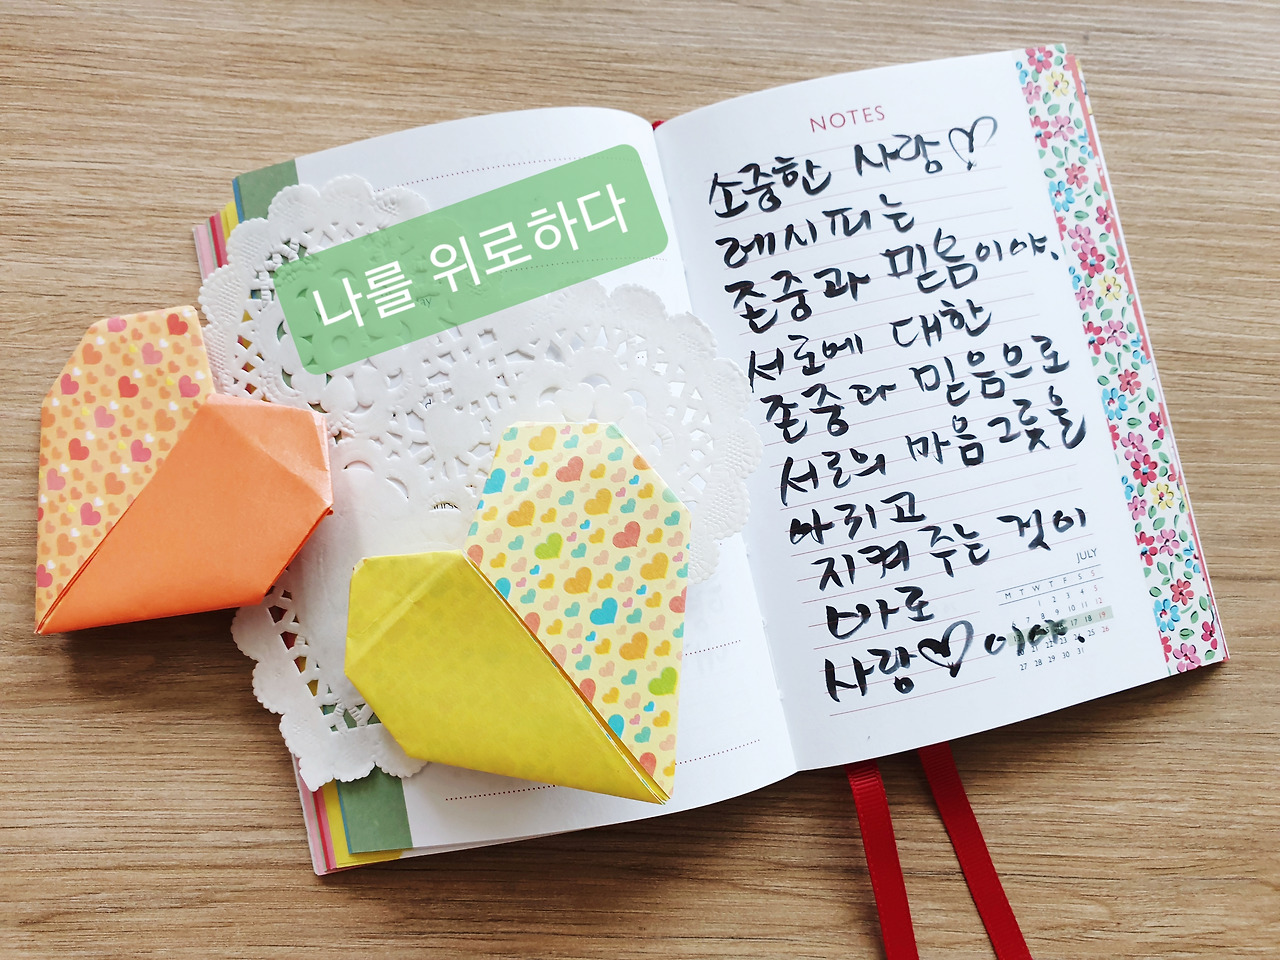 나를 위로하다
NOTES
소중한 사랑♡
레시피는
존중과 믿음이야.
서로에 대한
존중과 믿음으로
서로의 마음그릇을
아리고
지켜 주는 것이
바로
사랑♡이야.
JULY
M T W T F S S
1 2 3 4 5
6 7 8 9 10 11 12
17 18 19
21 22 23 24 25 26
27 28 29 30 31